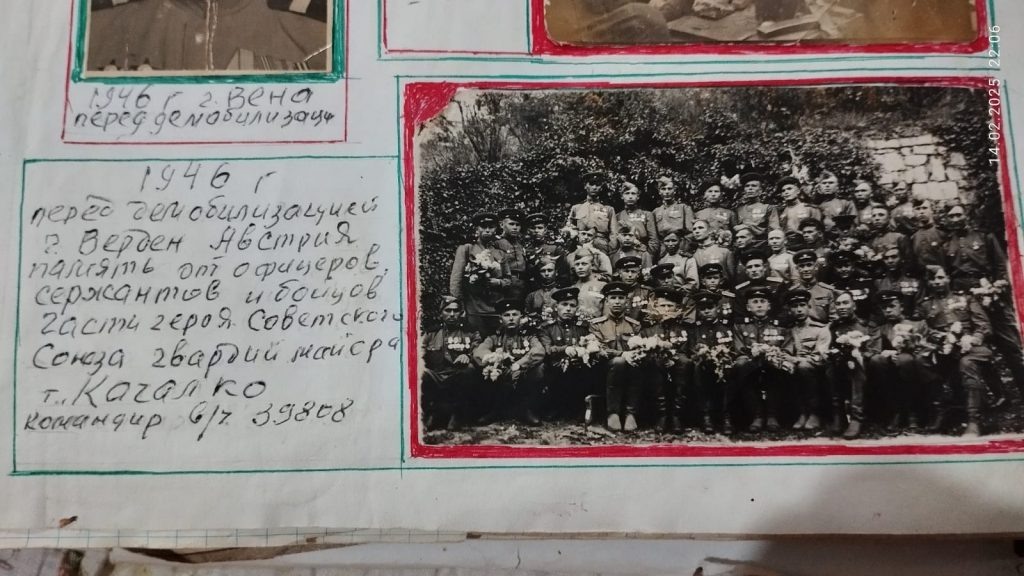 1946 г г. Вена
перед демобилизаци
1946 г
перед демобилизацией
г. Верден Австрия
память от офицеров,
сержантов и бойцов
части героя Советского
Союза гвардий майора
т. Качалко
командир в/ч 39808
14.02.2025 22:06